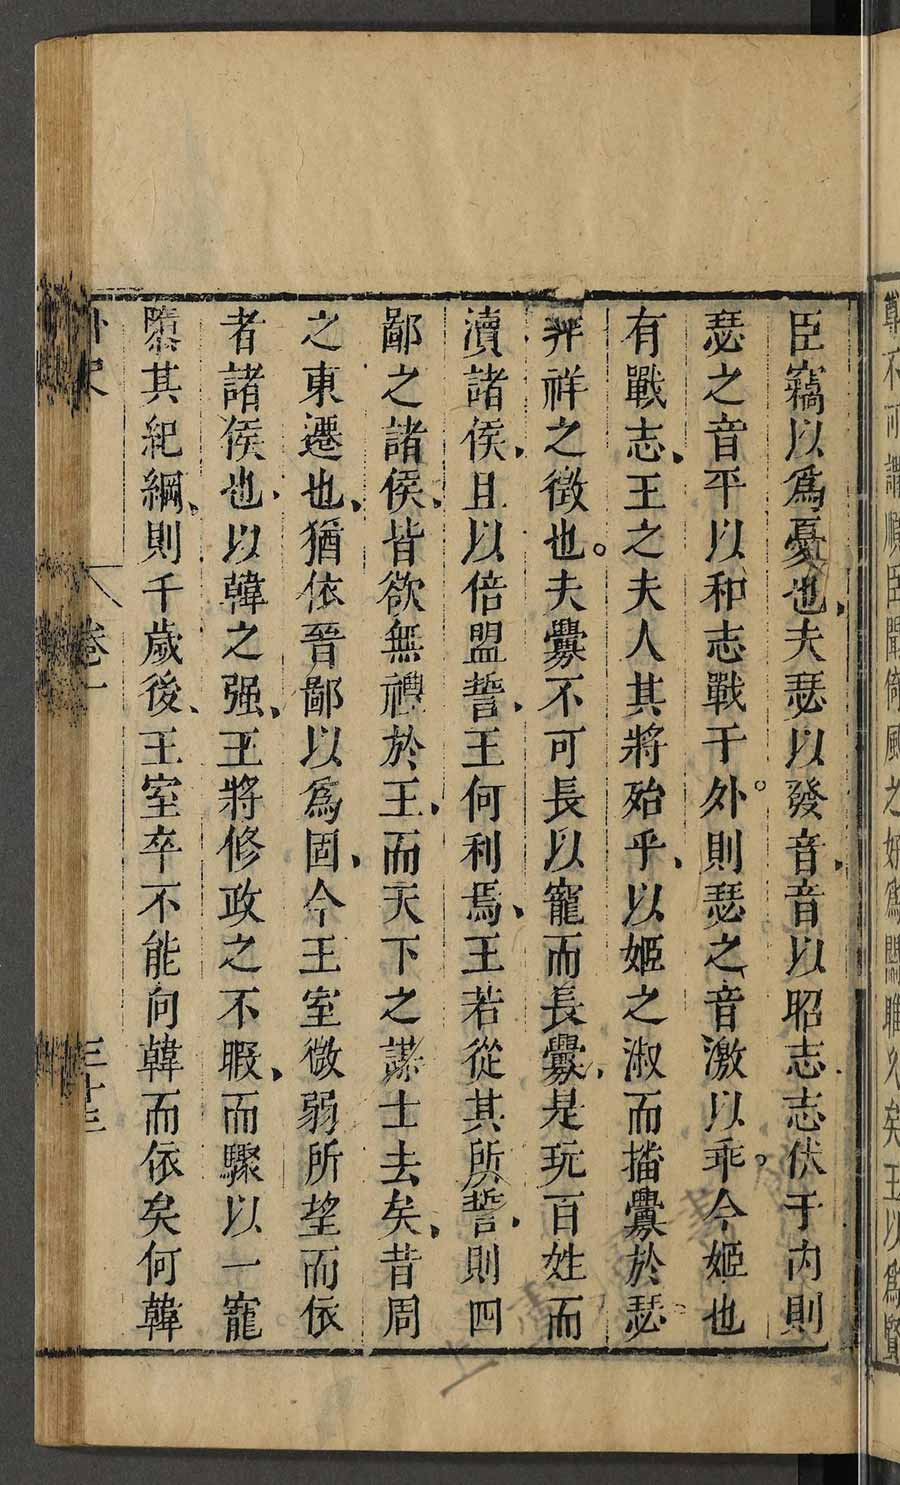 鄭不可謂順臣聞脩風之好爲關雎久矣王以爲賢
臣竊以爲憂也夫瑟以發音音以昭志志伏于內則
瑟之音平以和志戰于外則瑟之音激以乖今姬也
有戰志王之夫人其將殆乎以姬之淑而播釁於瑟
弁祥之徵也夫釁不可長以寵而長釁是玩百姓而
瀆諸侯且以倍盟誓王何利焉王若從其所誓則四
鄙之諸侯皆欲無禮於王而天下之謀士去矣昔周
之東遷也猶依晉鄙以爲固今王室微弱所望而依
者諸侯也以韓之强王將修政之不暇而驟以一寵
隳其紀綱則千歲後王室卒不能向韓而依矣何韓
外史 卷一 三十三